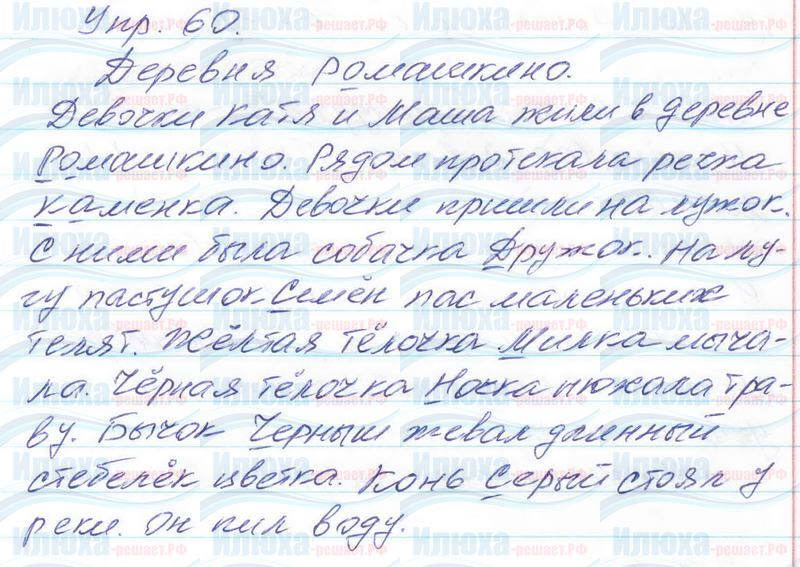 Упр. 60.
Деревня Ромашкино.
Девочки Катя и Маша жили в деревне
Ромашкино. Рядом протекала речка
Каменка. Девочки пришли на лужок.
С ними была собачка Дружок. На лу-
гу пастушок Симён пас маленьких
телят. Жёлтая тёлочка Милка мыча-
ла. Чёрная тёлочка Ночка нюхала тра-
ву. Бычок Черныш жевал длинный
стебелёк цветка. Конь Серый стоял у
реки. Он пил воду.
Илюха-решает.РФ